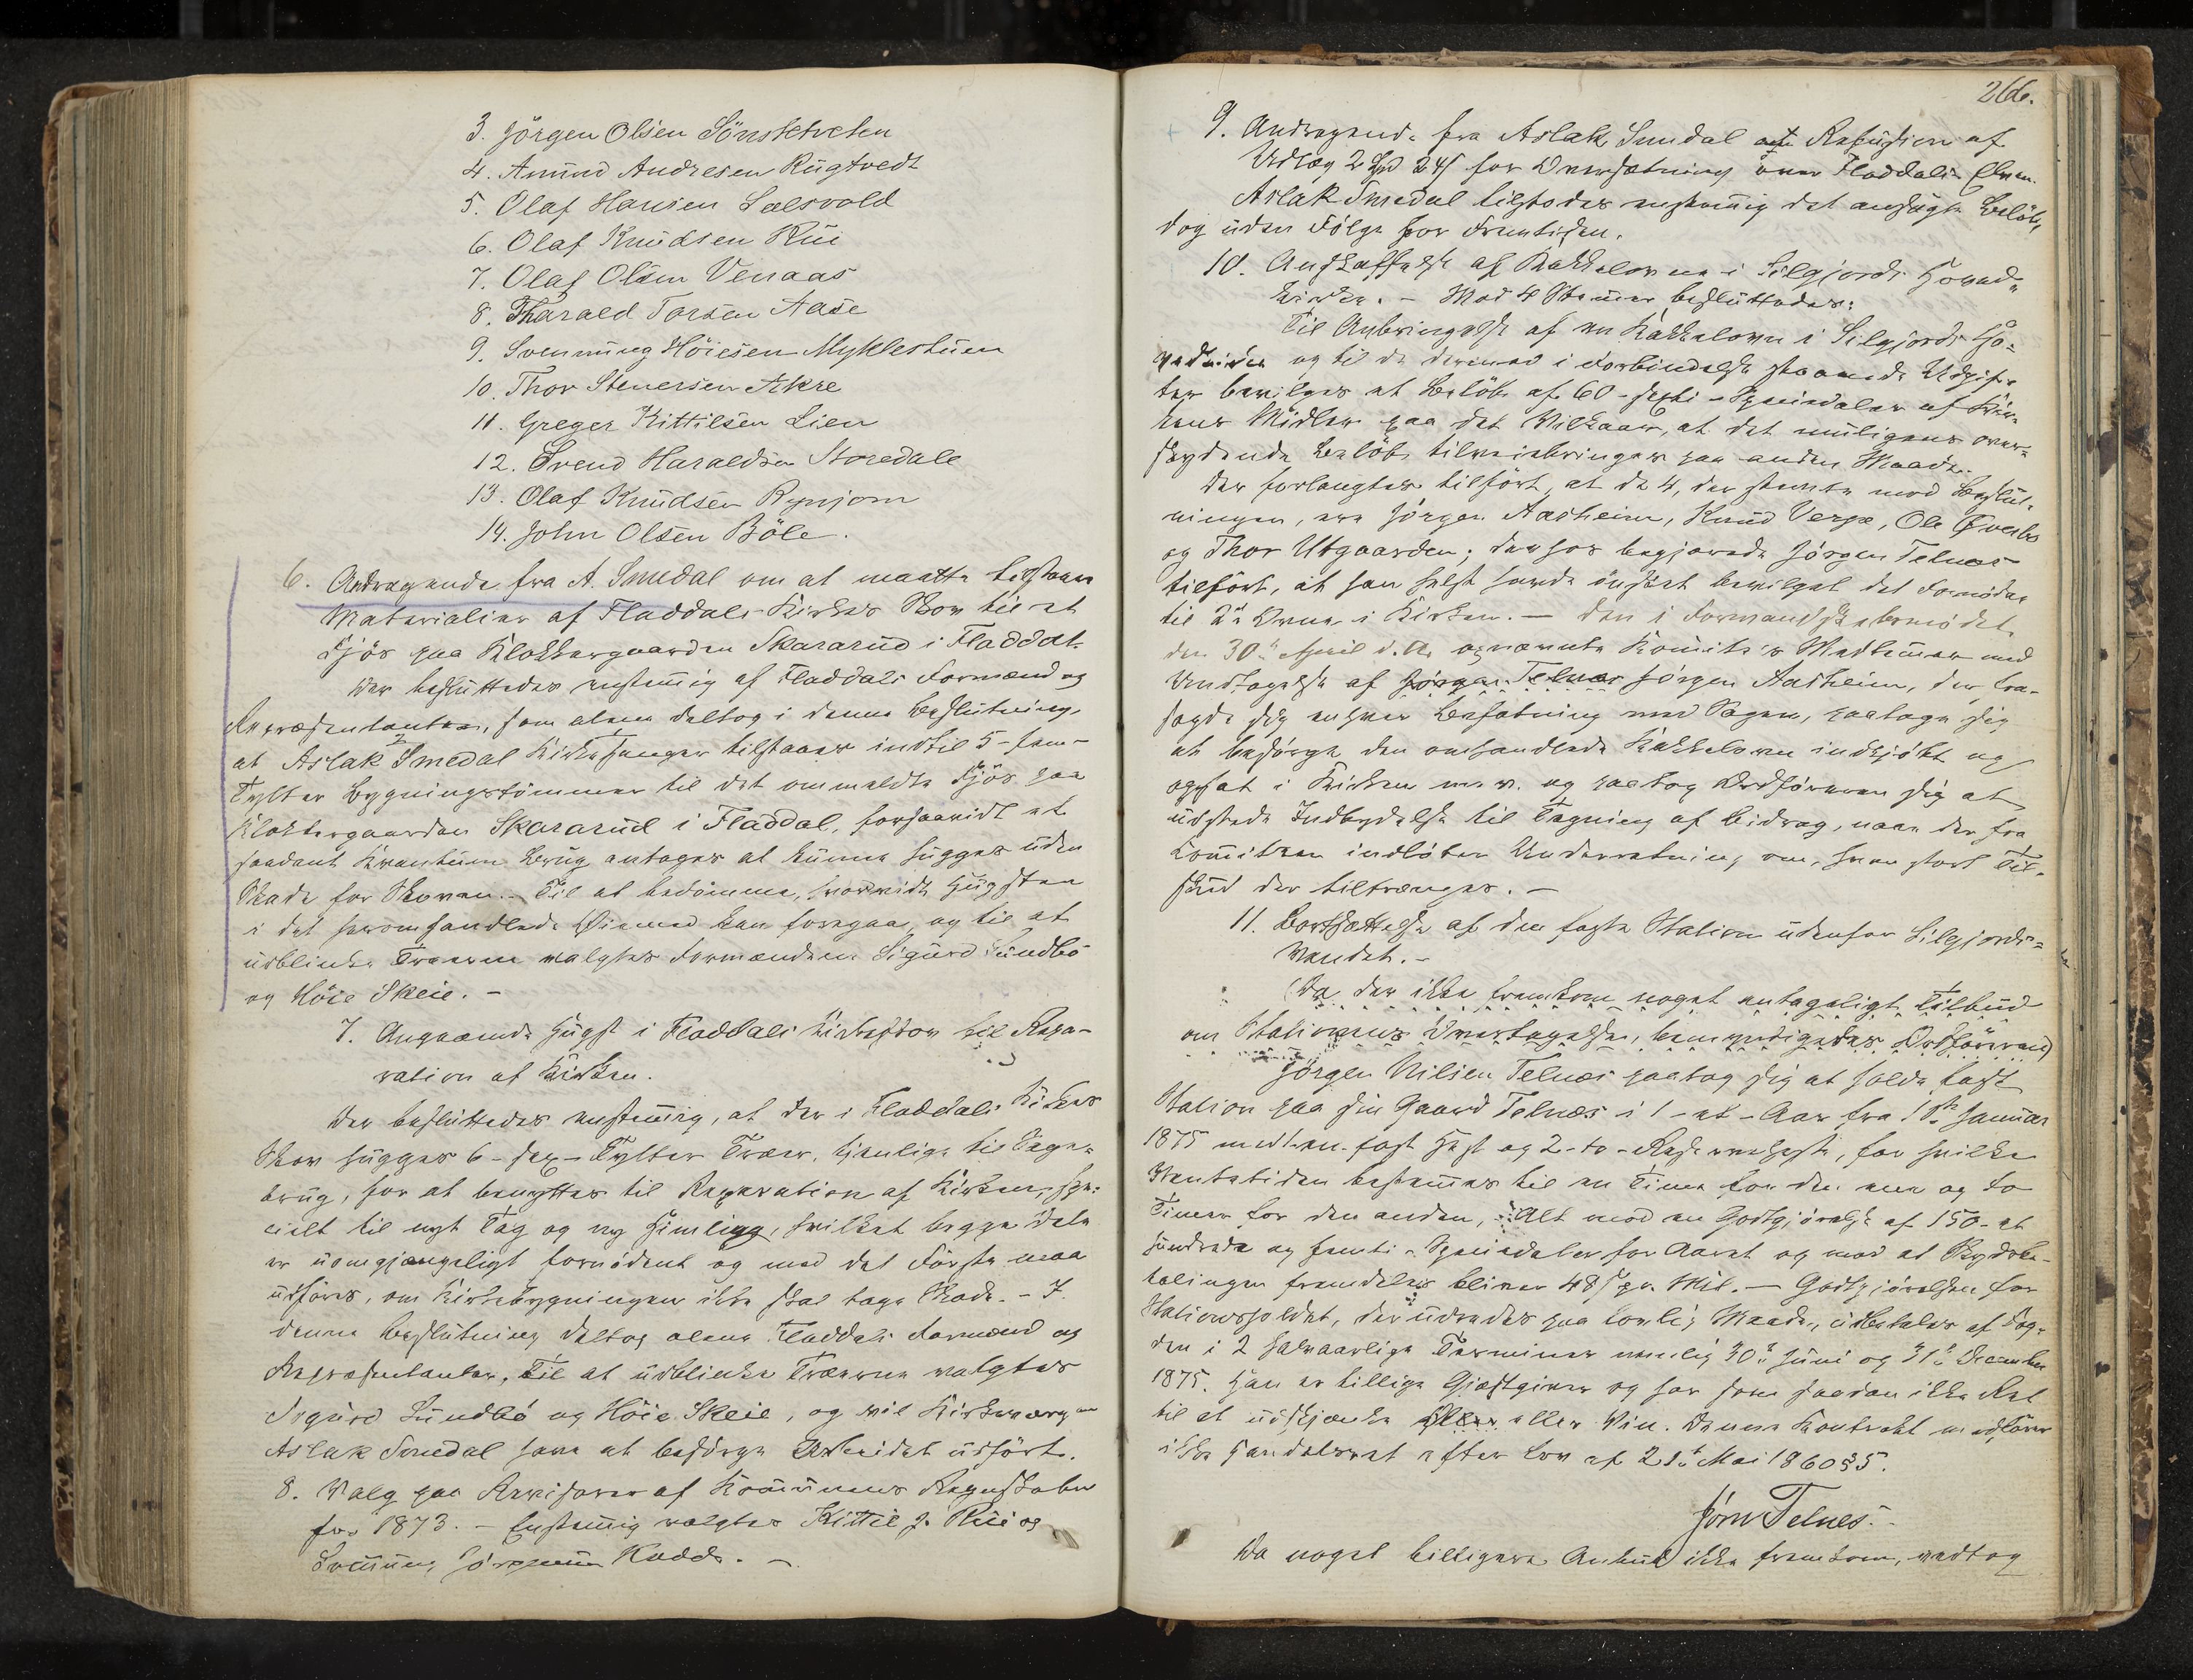 3. Jörgen Olsen Sönstetveten
4. Amund Andresen Rugtvedt
5. Olaf Hansen Lalsvold
6. Olaf Knudsen Rui
7. Olaf Olsen Venaas
8. Tharald Torsen Aase
9. Svennung Höiesen Myklestuen
10. Thor Stenersen Akre
11. Greger Kittilsen Lien
12. Svend Haraldsen Storedale
13. Olaf Knudsen Rynjom
14. John Olsen Böle.
6. Andragende fra A. Smedal om at maatte tilstaaes
Materialier af Fladdals Kirkes Skov til et
Fjös paa Klokkergaarden Skararud i Fladdal.
Der besluttedes enstemig af Fladdals Formænd og
Repræsentanter, som alene deltog i denne Beslutning,
at Aslak Smedal Kirkesanger tilstaaes indtil 5 - fem -
Tylter Bygningstömmer til det ommeldte Fjös paa
Klokkergaarden Skararud i Fladdal, forsaavidt et
saadant Kvantum Brug antages at kunne hugges uden
Skade for Skoven. - Til at bedömme, hvorvidt Hugsten
i det heromhandlede Öiemed kan foregaa, og til at
udblinke Træerne valgtes Formændene Sigurd Sundbö
og Höie Skeie. -
7. Angaaende Hugst i Fladdals Kirkeskov til Repa-
ration af Kirken.
Der besluttedes enstemig, at der i Fladdals Kirkes
Skov hugges 6 - sex - Tylter Træer, tjenlige til Sage-
brug, for at benyttes til Reparation af Kirken, spe-
cielt til nyt Tag og ny Himling, hvilket begge Dele
er uomgjængeligt fornödent og med det Förste maa
udföres, om Kirkebygningen ikke skal tage Skade. - I
denne Beslutning deltog alene Fladdals Formænd og
Repræsentanter. Til at udblinke Træerne valgtes
Sigurd Sundbö og Höie Skeie, og vil Kirkeværgen
Aslak Smedal have at besörge Arbeidet udfört.
8. Valg paa Revisorer af Kommunens Regnskaber
for 1873. - Enstemig valgtes Kittil J. Rui og
Svennung Jörgensen Kodds. -
266.
9. Andragende fra Aslak Smedal om Refusion af
Udlæg 2 Spd 24 s for Oversætning over Fladdals Elven.
Aslak Smedal tilstodes enstemig det ansögte Belöb,
dog uden Fölge for Fremtiden.
10. Anskaffelse af Kakkelovne i Silgjords Hoved-
kirke. - Med 4 Stemmer besluttedes:
Til Anbringelse af en Kakkelovn i Silgjords Ho-
vedkirke og til de dermed i Forbindelse staaende Udgif-
ter bevilges et Belöb af 60 - sexti - Speciedaler af Kir-
kens Midler paa det Vilkaar, at det muligens over-
skydende Belöb tilveiebringes paa anden Maade.
Der forlangtes tilfört, at de 4, der stemte mod Beslut-
ningen, var Jörgen Aasheim, Knud Verpe, Ole Överbö
og Thor Utgaarden; derhos begjærede Jörgen Telnæs
tilfört, at han helst havde önsket bevilget det Fornödne
til 2de Ovne i Kirken. - Den i Formandskabsmödet
den 30te April d. A. opnævnte Komite's Medlemmer med
Undtagelse af Jörgen Telnæs Jörgen Aasheim, der fra-
sagde sig enhver Befatning med Sagen, paatoge sig
at besörge den omhandlede Kakkelovn indkjöbt og
opsat i Kirken m. v. og paatog Ordföreren sig at
udstede Indbydelse til Tegning af Bidrag, naar der fra
Komiteen indlöber Underretning om, hvor stort Til-
skud der tiltrænges. -
11. Bortsættelse af den faste Station udenfor Silgjords-
vandet. -
(Da der ikke fremkom noget antageligt Tilbud
om Stationens Overtagelse, bemyndigedes Ordföreren)
Jörgen Nilsen Telnæs paatog sig at holde fast
Station paa sin Gaard Telnæs i 1 - et - Aar fra 1ste Januar
1875 med en fast Hest og 2 - to - Reserveheste, for hvilke
Ventetiden bestemmes til en Time for den ene og to
Timer for den anden, Alt mod en Godtgjörelse af 150 - et
hundrede og femti - Speciedaler for Aaret og mod at Skydsbe-
talingen fremdeles bliver 48 s pr. Mil. - Godtgjörelsen for
Stationsholdet, der udredes paa lovlig Maade, udbetales af Fog-
den i 2 halvaarlige Terminer nemlig 30te Juni og 31te December
1875. Han er tillige Gjæstgiver og har som saadan ikke Ret
til at udskjænke Öl eller Vin. Denne Kontrakt medförer
ikke Handelsret efter Lov af 21de Mai 1860 § 5.
Jörn Telnes.
Da noget billigere Anbud ikke fremkom, vedtog